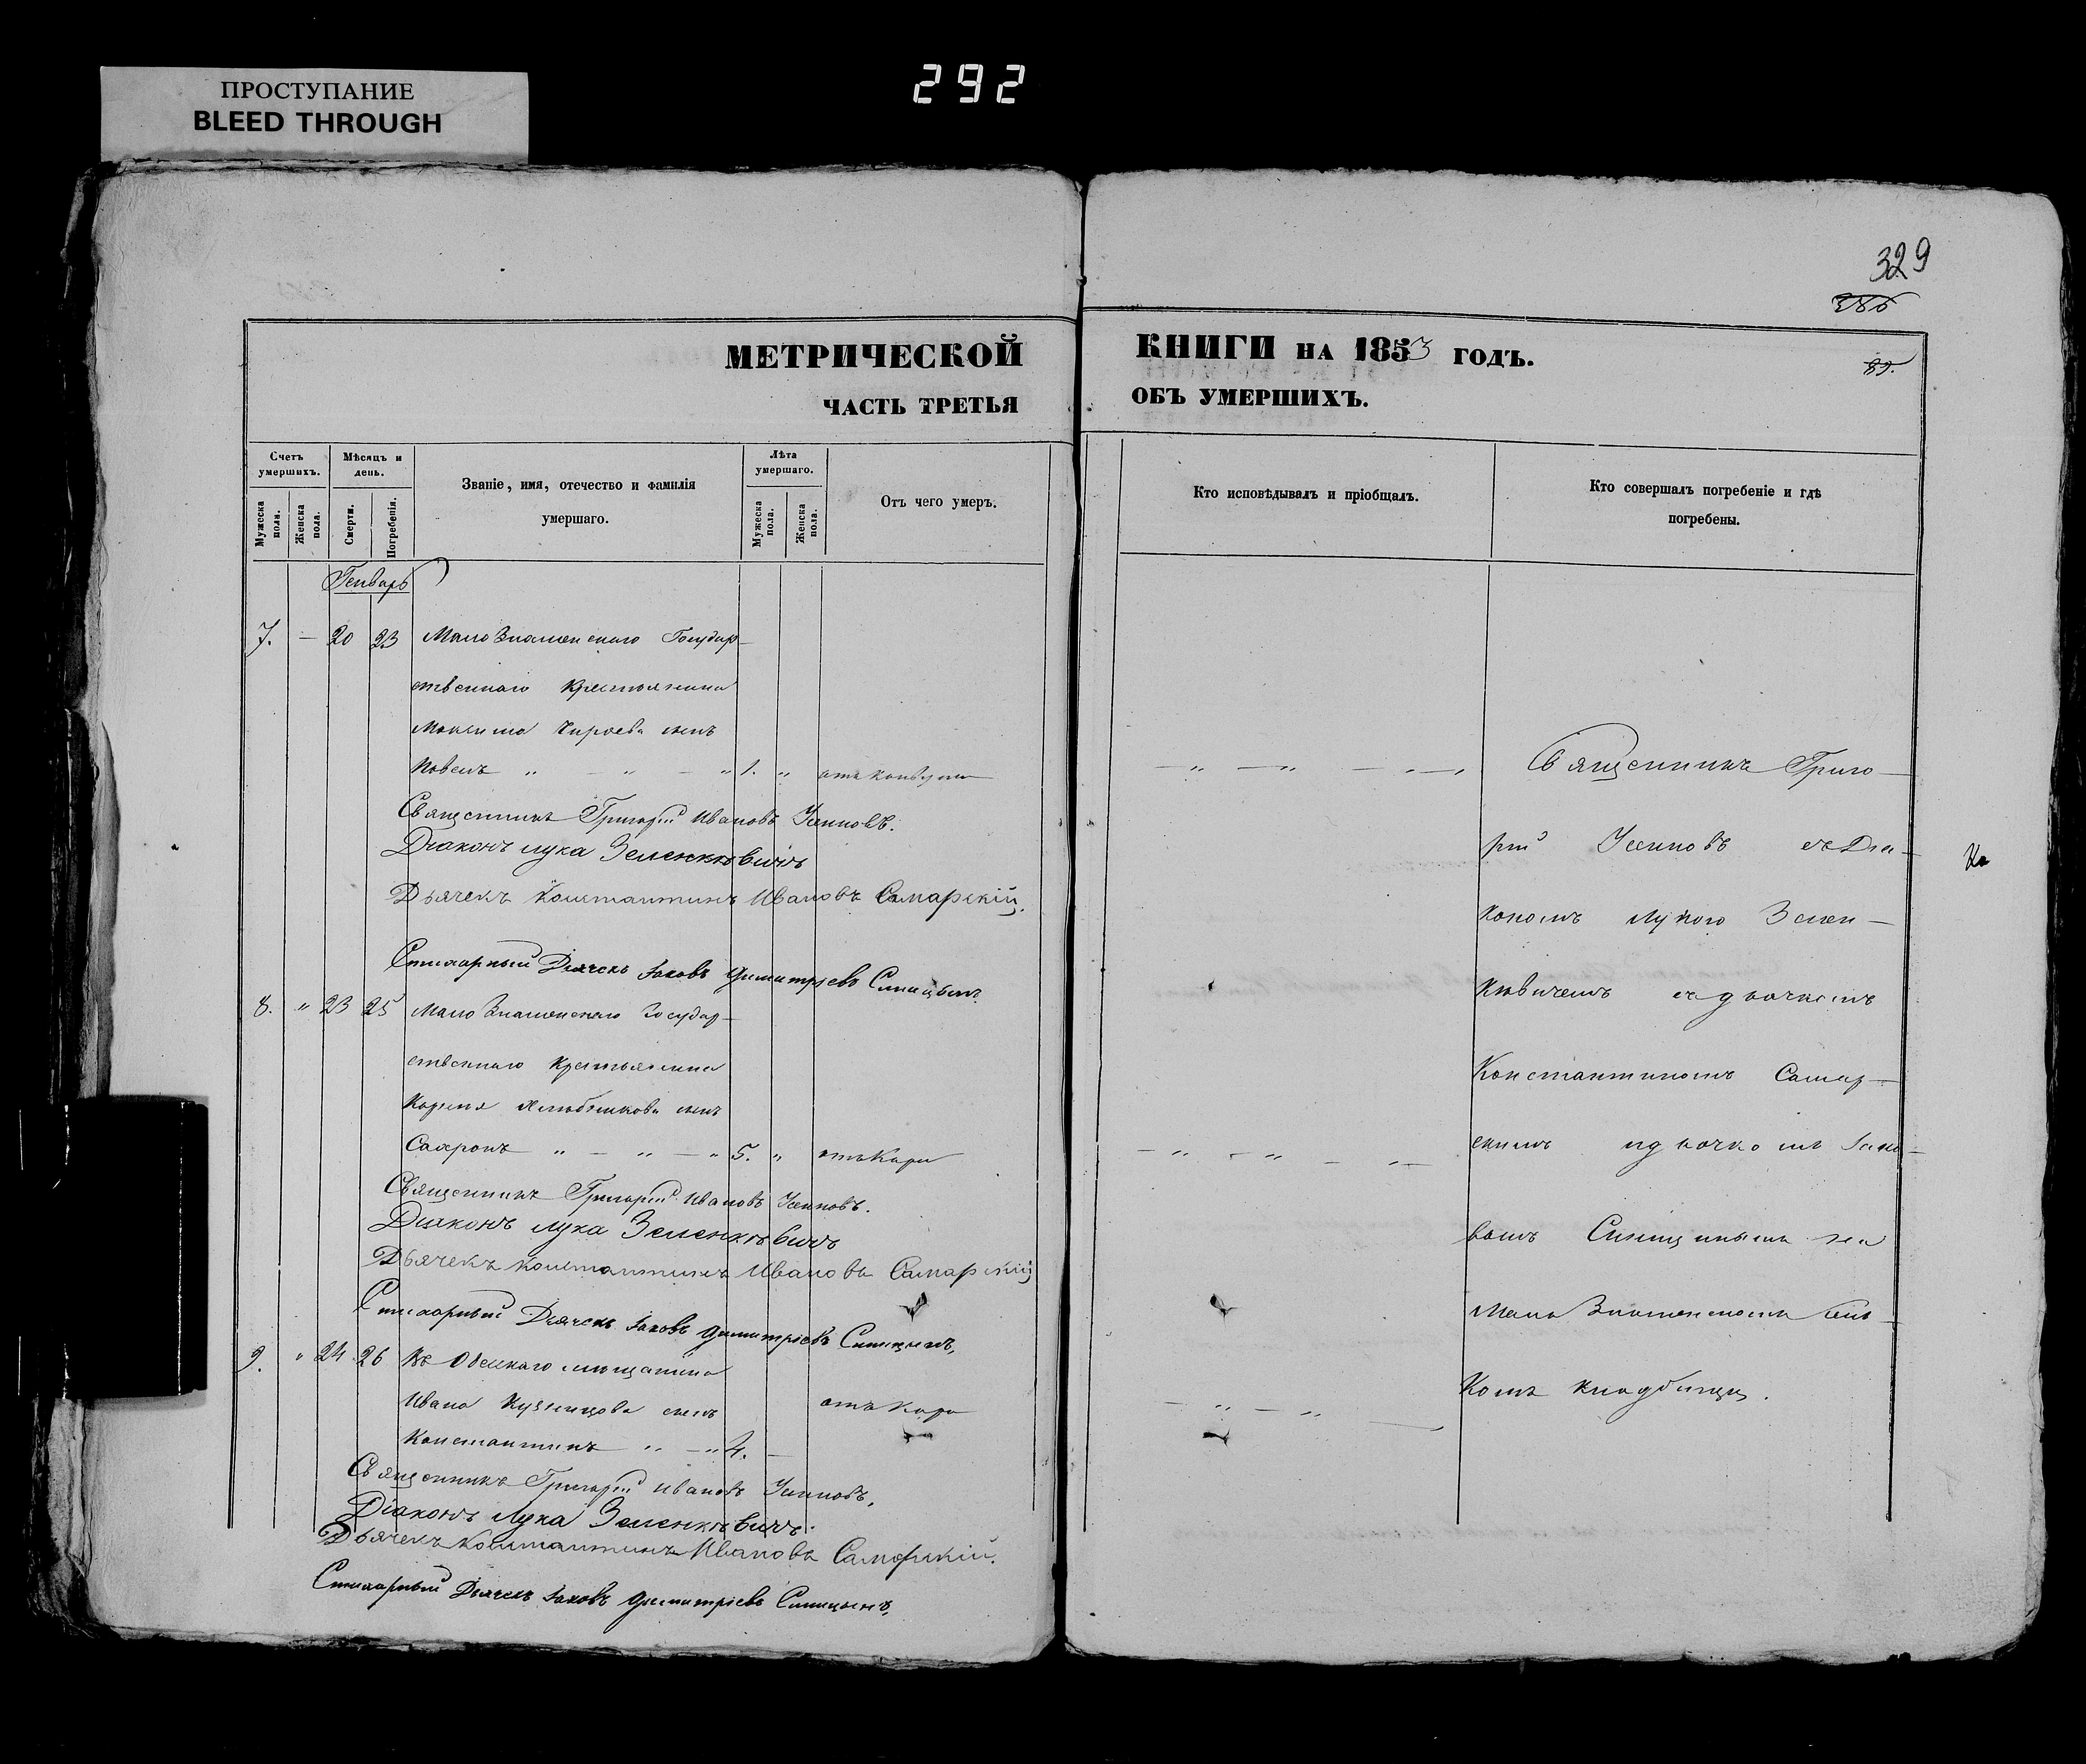 ПРОСТУПАНИЕ
BLEED THROUGH
292
329
МЕТРИЧЕСКОЙ
ЧАСТЬ ТРЕТЬЯ
Счетъ умершихъ.
Мѣсяцъ и день.
Званіе, имя, отечество и фамилія умершаго.
Лѣта умершаго.
Отъ чего умеръ.
Мужеска пола.
Женска пола.
Смерти.
Погребенія.
Мужеска пола.
Женска пола.
Генварь
7. — 20 23 Мало Знаменскаго Государ-
ственнаго Крестьянина
Максима сынъ
Павелъ " — " — " 1. "
Священникъ Григорій Ивановъ
Діаконъ Лука Зеленкевичъ
Дьячекъ Константинъ Ивановъ Самарскій.
Стихарный Дьячекъ Іаковъ Димитріевъ Синицынъ
8. " 23 25 Мало Знаменскаго Государ-
ственнаго Крестьянина
сынъ
" — " — " 5. " отъ Кори
Священникъ Григорій Ивановъ
Діаконъ Лука Зеленкевичъ
Дьячекъ Константинъ Ивановъ Самарскій
Стихарный Дьячекъ Іаковъ Димитріевъ Синицынъ,
9. " 24 26 мѣщанина
Ивана Кузнецова сынъ отъ Кори
Константинъ " — " 4. —
Священникъ Григорій Ивановъ
Діаконъ Лука Зеленкевичъ.
Дьячекъ Константинъ Ивановъ Самарскій.
Стихарный Дьячекъ Іаковъ Димитріевъ Синицынъ,
КНИГИ НА 1853 ГОДЪ.
ОБЪ УМЕРШИХЪ.
Кто исповѣдывалъ и пріобщалъ.
Кто совершалъ погребеніе и гдѣ погребены.
Священникъ Григо-
рій съ Діа-
кономъ Лукою Зелен-
кевичемъ съ дьячкомъ
Константиномъ Самар-
скимъ и дьячкомъ Іако-
вомъ Синицынымъ на
Мало Знаменскомъ
комъ кладбищѣ.